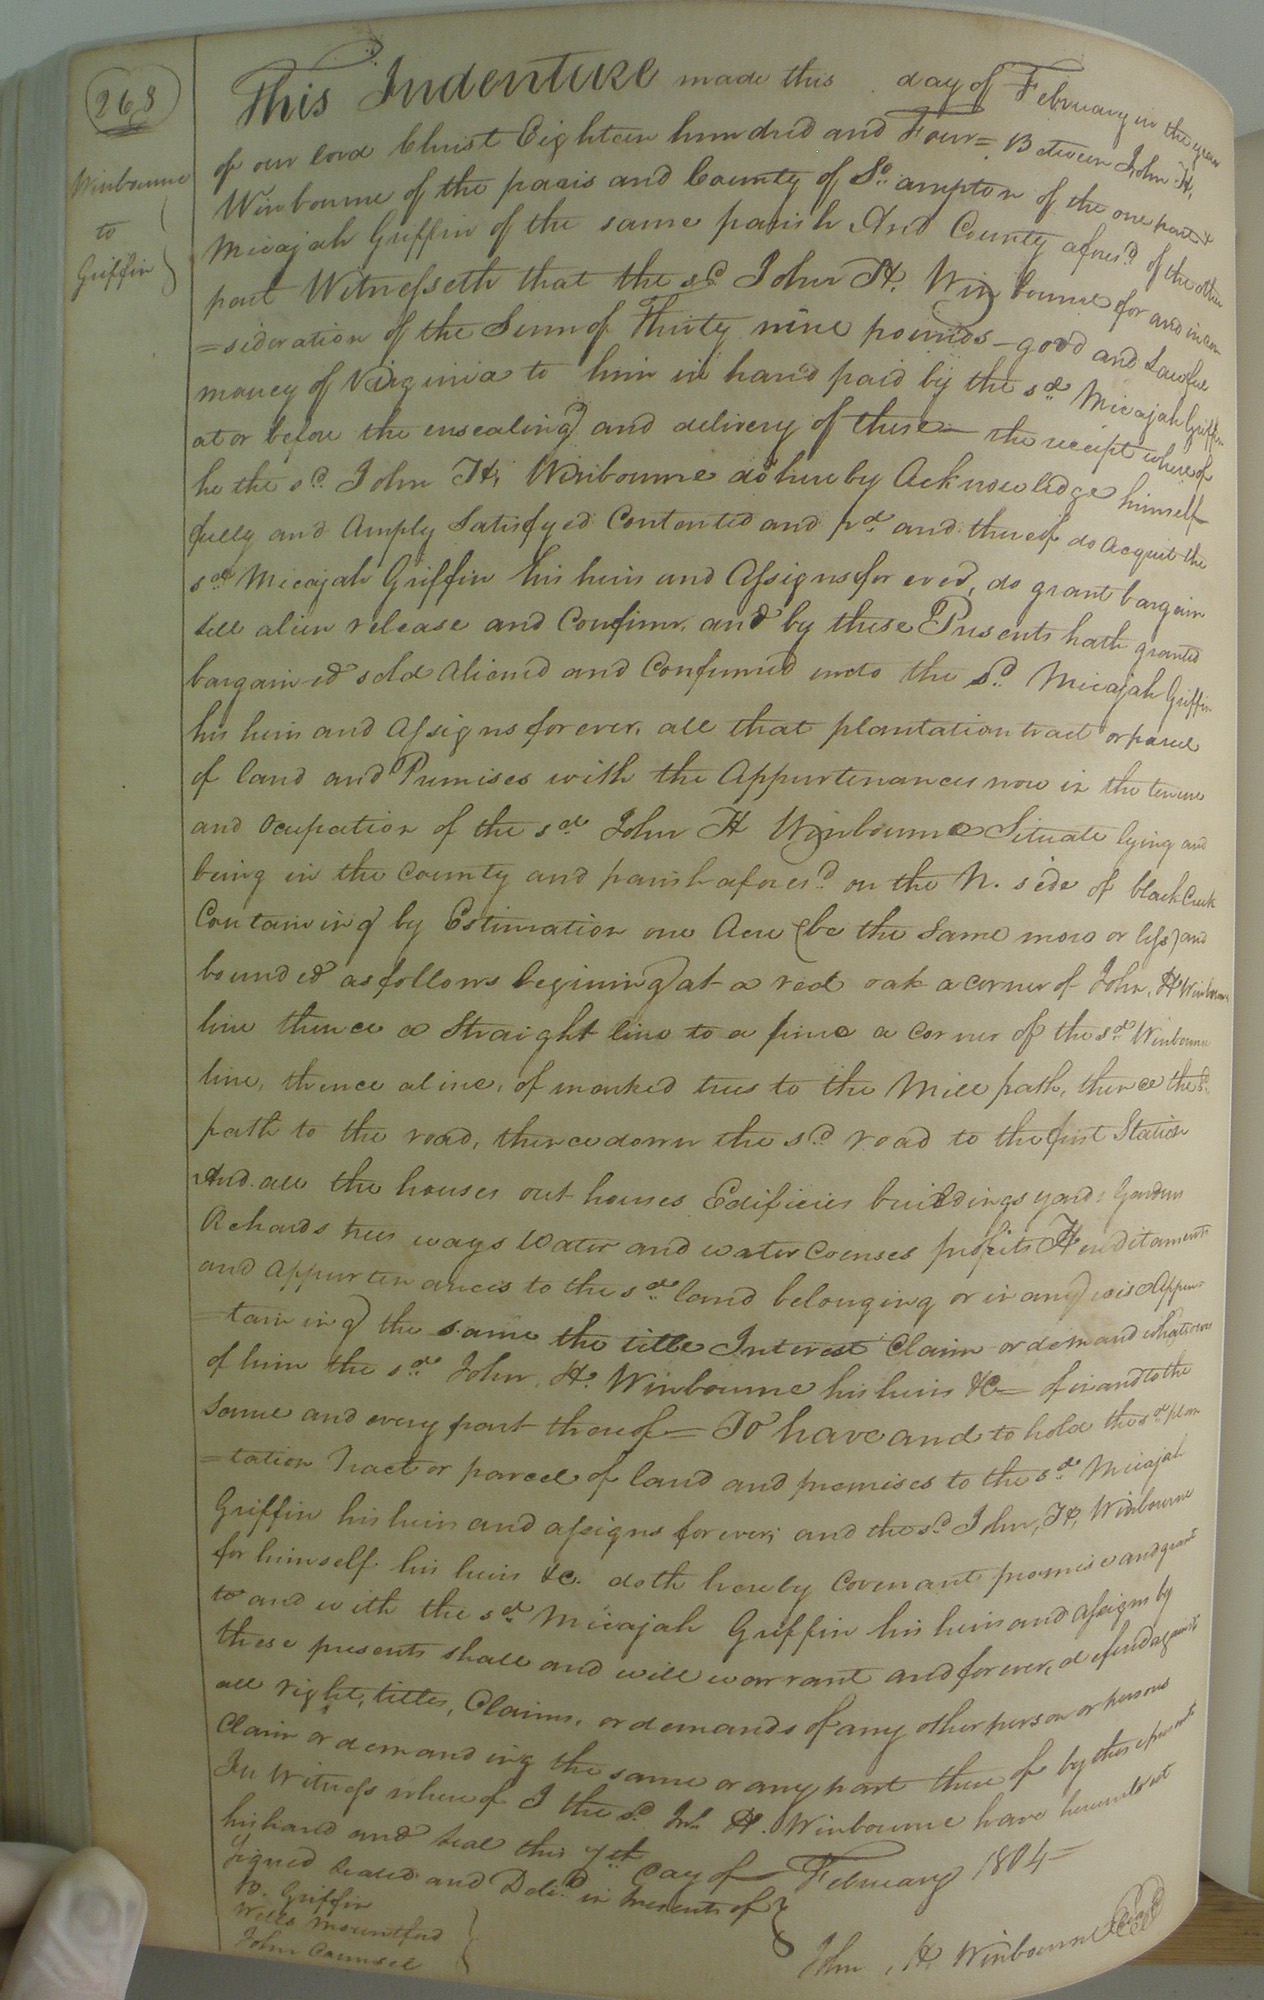 268
Winbourne
to
Griffin
This Indenture made this day of February in the year
of our lord Christ Eighteen hundred and Four = Between John H,
Winbourne of the paris and County of So. ampton of the one part &
Micajah Griffin of the same parish And County afores.d of the other
part Witnesseth that the s.d John H. Winbourne for and in con
=sideration of the Sum of Thirty nine pounds - good and Lawful
money of Virginia to him in hand paid by the s.d Micajah Griffin
at or before the ensealing and delivery of these - the receipt where of
he the s.d John H, Winbourne do hereby Acknowledge himself
fully and Amply Satisfyed Contented and p.d and thereof do Acquit the
s.d Micajah Griffin his heirs and Assigns for ever, do grant bargain
sell alien release and Confirm, and by these Presents hath granted
bargained sold Aliened and Confirmed unto the s.d Micajah Griffin
his heirs and Assigns for ever, all that plantation tract or parcel
of land and Premises with the Appurtenances now in the tenure
and Ocupation of the s.d John H Winbourne Situate lying and
being in the County and parish afores.d on the N. side of black Creek
Containing by Estimation one Acre (be the same more or less) and
bounded as follows begining at a red oak a corner of John, H Winbourne
line thence a Straight line to a pine a corner of the s.d Winbourne
line, thence a line, of marked trees to the Mill path, thence the s.d
path to the road, thence down the s.d road to the first Station
And all the houses out houses Edificies buildings yards Gardens
Orchards trees ways water and water Courses profits Heriditaments
and appurtenances to the s.d land belonging or in any wise Apper=
=taining the same the title Interest Claim or demand whatsoever
of him the s.d John, H. Winbourne his heirs &C= of in and to the
same and every part thereof = To have and to hold the s.d plan
=tation Tract or parcel of land and premises to the s.d Micajah
Griffin his heirs and assigns for ever; and the s.d John, H, Winbourne
for himself his heirs &c. doth hereby Covenant promise and grant
to and with the s.d Micajah Griffin his heirs and Assigns by
these presents shall and will warrant and for ever, defend against
all right, titles, Claims, or demands of any other person or persons
Claim or demanding the same or any part there of by these presents
In Witness where of I the s.d Jno H. Winbourne have hereunto set
his hand and seal this 7th day of February 1804 =
Signed Sealed and Deli.d in presents of
B. Griffin
Wills Mountford
John Counsel
John, H, Winbourne Seal